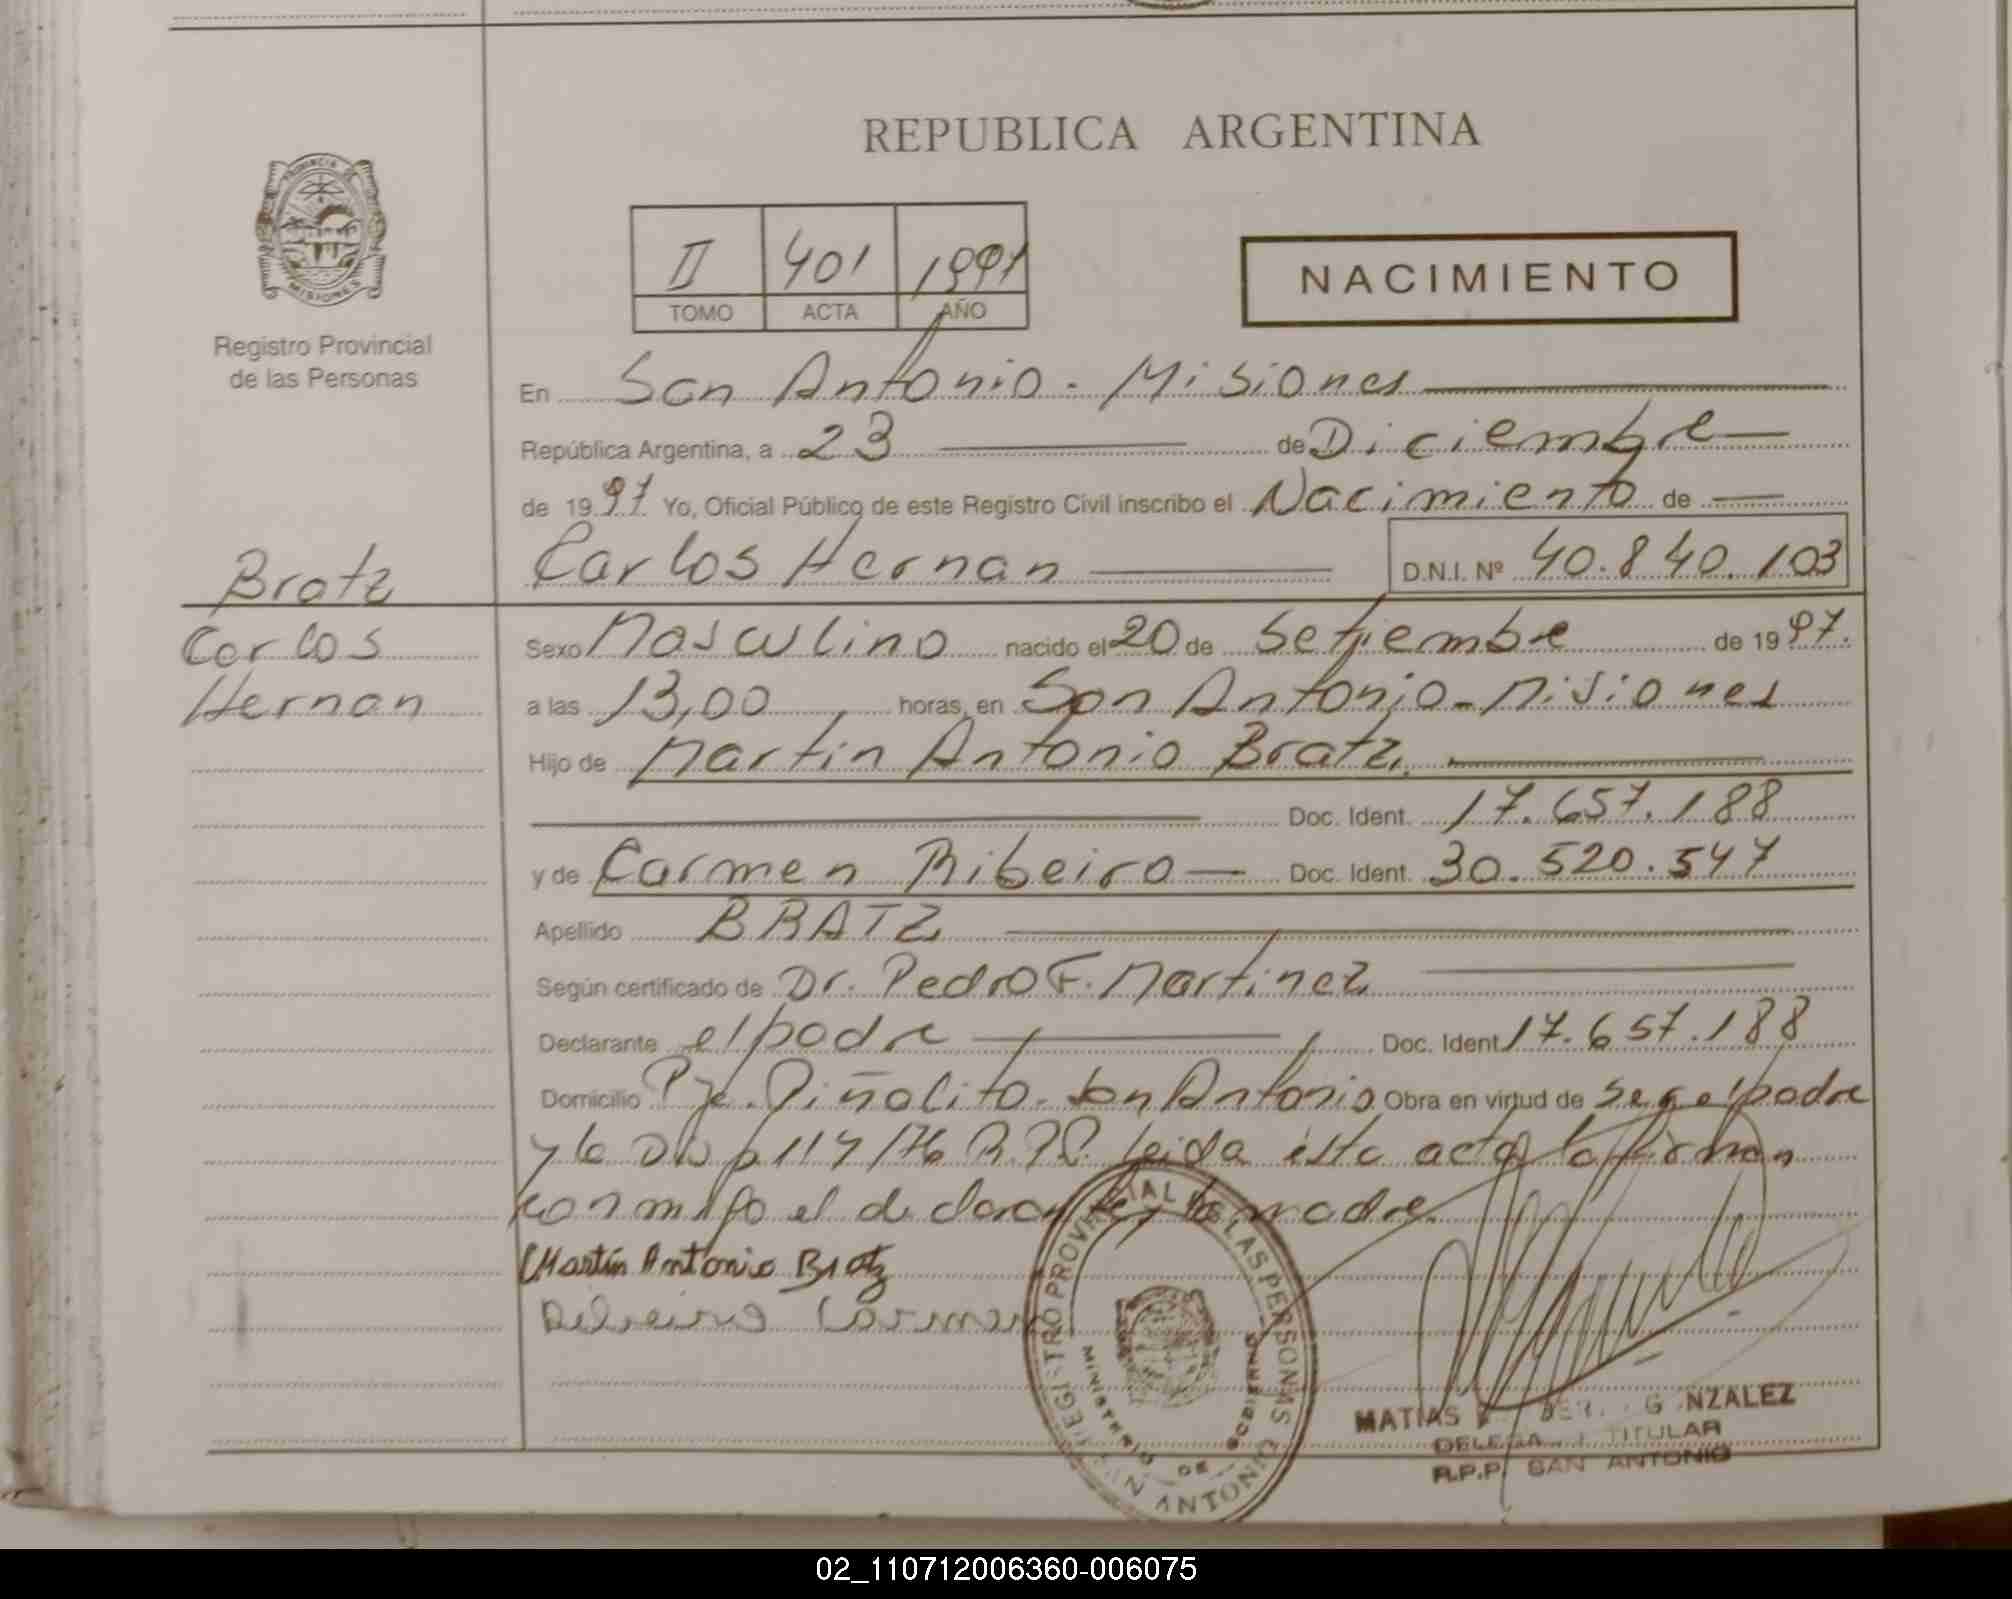 REPUBLICA ARGENTINA
PROVINCIA DE
MISIONES
II 401 1997
TOMO ACTA AÑO
NACIMIENTO
Registro Provincial
de las Personas
En San Antonio - Misiones
República Argentina, a 23 de Diciembre
de 1997 Yo, Oficial Público de este Registro Civil inscribo el Nacimiento de
Carlos Hernan D.N.I. Nº 40.840.103
Bratz
Carlos
Hernan
Sexo Masculino nacido el 20 de Setiembre de 1997.
a las 13,00 horas, en San Antonio - Misiones
Hijo de Martin Antonio Bratz.
Doc. Ident. 17.657.188
y de Carmen Ribeiro Doc. Ident. 30.520.547
Apellido BRATZ
Según certificado de Dr. Pedro F. Martinez
Declarante el padre Doc. Ident. 17.657.188
Domicilio Pje. Piñalito - San Antonio Obra en virtud de ser el padre
y la 117/76 leida esta acta la firman
conmigo el declarante y la madre.
Martín Antonio Bratz
Ribeiro Carmen
REGISTRO PROVINCIAL DE LAS PERSONAS
MINISTERIO DE GOBIERNO
SAN ANTONIO
MATIAS GONZALEZ
TITULAR
R.P.P. SAN ANTONIO
02_110712006360-006075